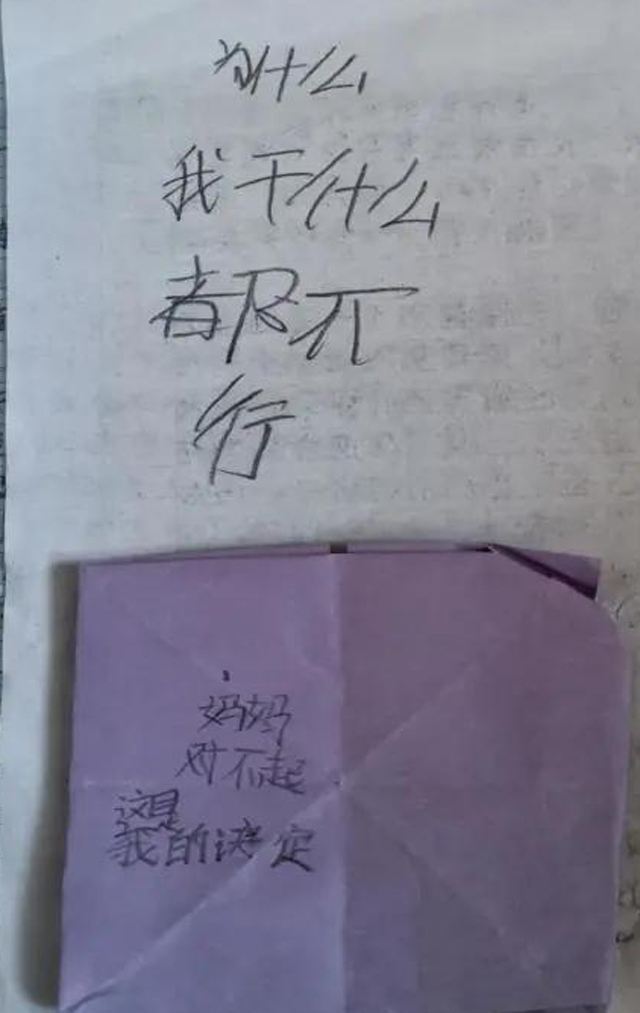 为什么
我干什么
都不
行
妈妈
对不起
这是
我的决定